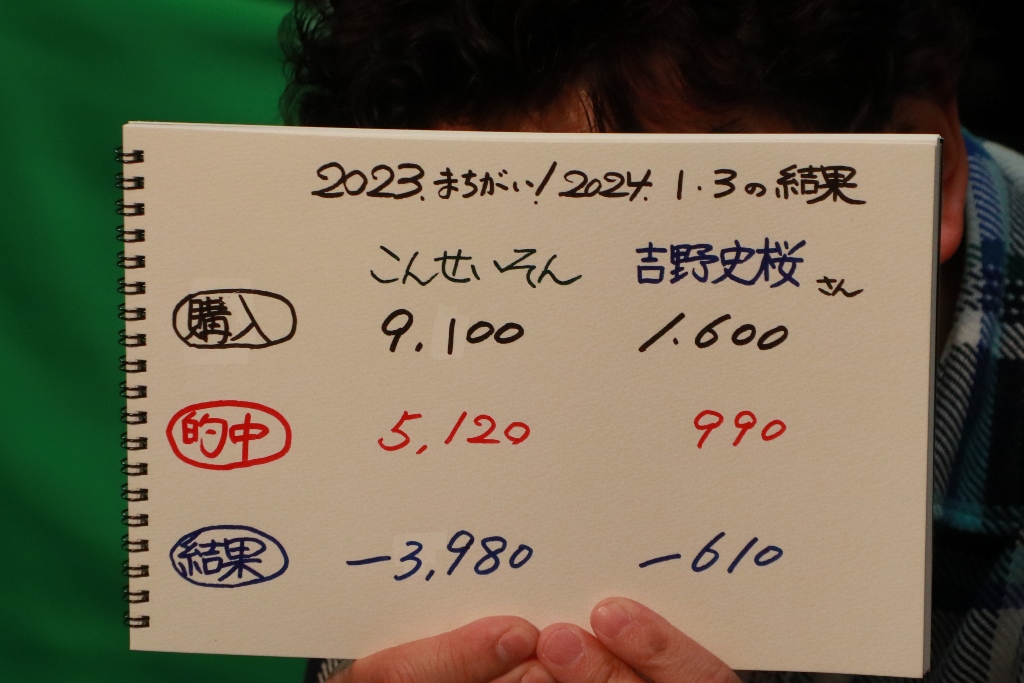 2023.まちがい!2024. 1.3の結果
こんせいそん 吉野史桜さん
購入 9,100 1.600
的中 5,120 990
結果 -3,980 -610